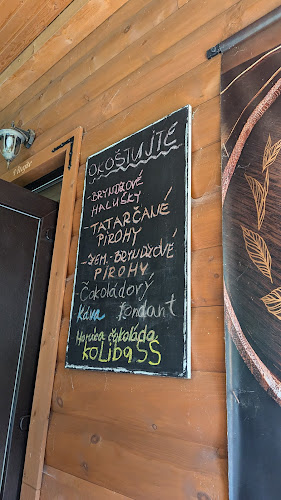 OKOŠTUJTE
-BRYNDZOVÉ
HALUŠKY
-TATARČANÉ
PIROHY
-ZEM.-BRYNDZOVÉ
PIROHY
-Čokoládový
fondant
Káva
Horúca čokoláda
KOLIBASS